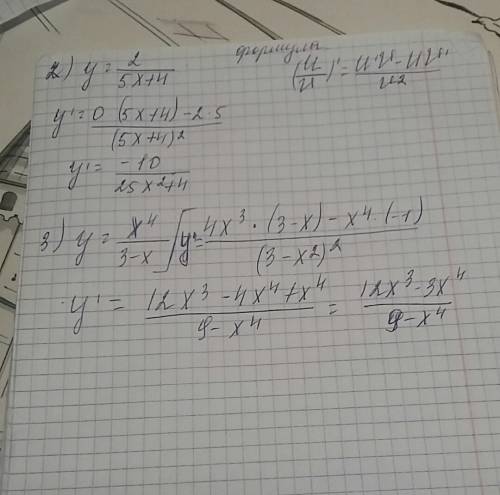 формулы
2) y = 2/(5x+4)
(u/v)' = (u'v - uv')/v2
y' = (0 (5x+4) - 2·5)/(5x+4)²
y' = -10/(25x²+4)
3) y = x⁴/(3-x) y' = (4x³ · (3-x) - x⁴·(-1))/(3-x2)²
y' = (12x³ - 4x⁴ + x⁴)/(9-x⁴) = (12x³ - 3x⁴)/(9-x⁴)